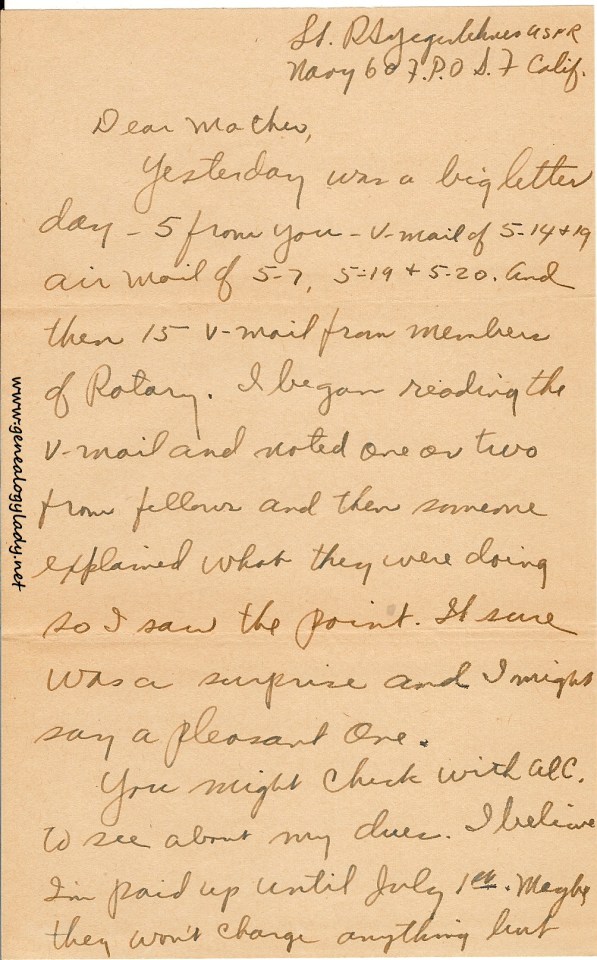 Lt. R S Yegerlehner USNR
Navy 60 F.P.O S.F Calif.
Dear Mother,
Yesterday was a big letter
day - 5 from you - V-mail of 5-14 + 19
air mail of 5-7, 5-19 + 5-20. And
then 15 V-mail from members
of Rotary. I began reading the
V-mail and noted one or two
from fellows and then someone
explained what they were doing
so I saw the point. It sure
was a surprise and I might
say a pleasant one.
You might check with
to see about my dues. I believe
I'm paid up until July 1st. Maybe
they won't charge anything but
www.genealogylady.net